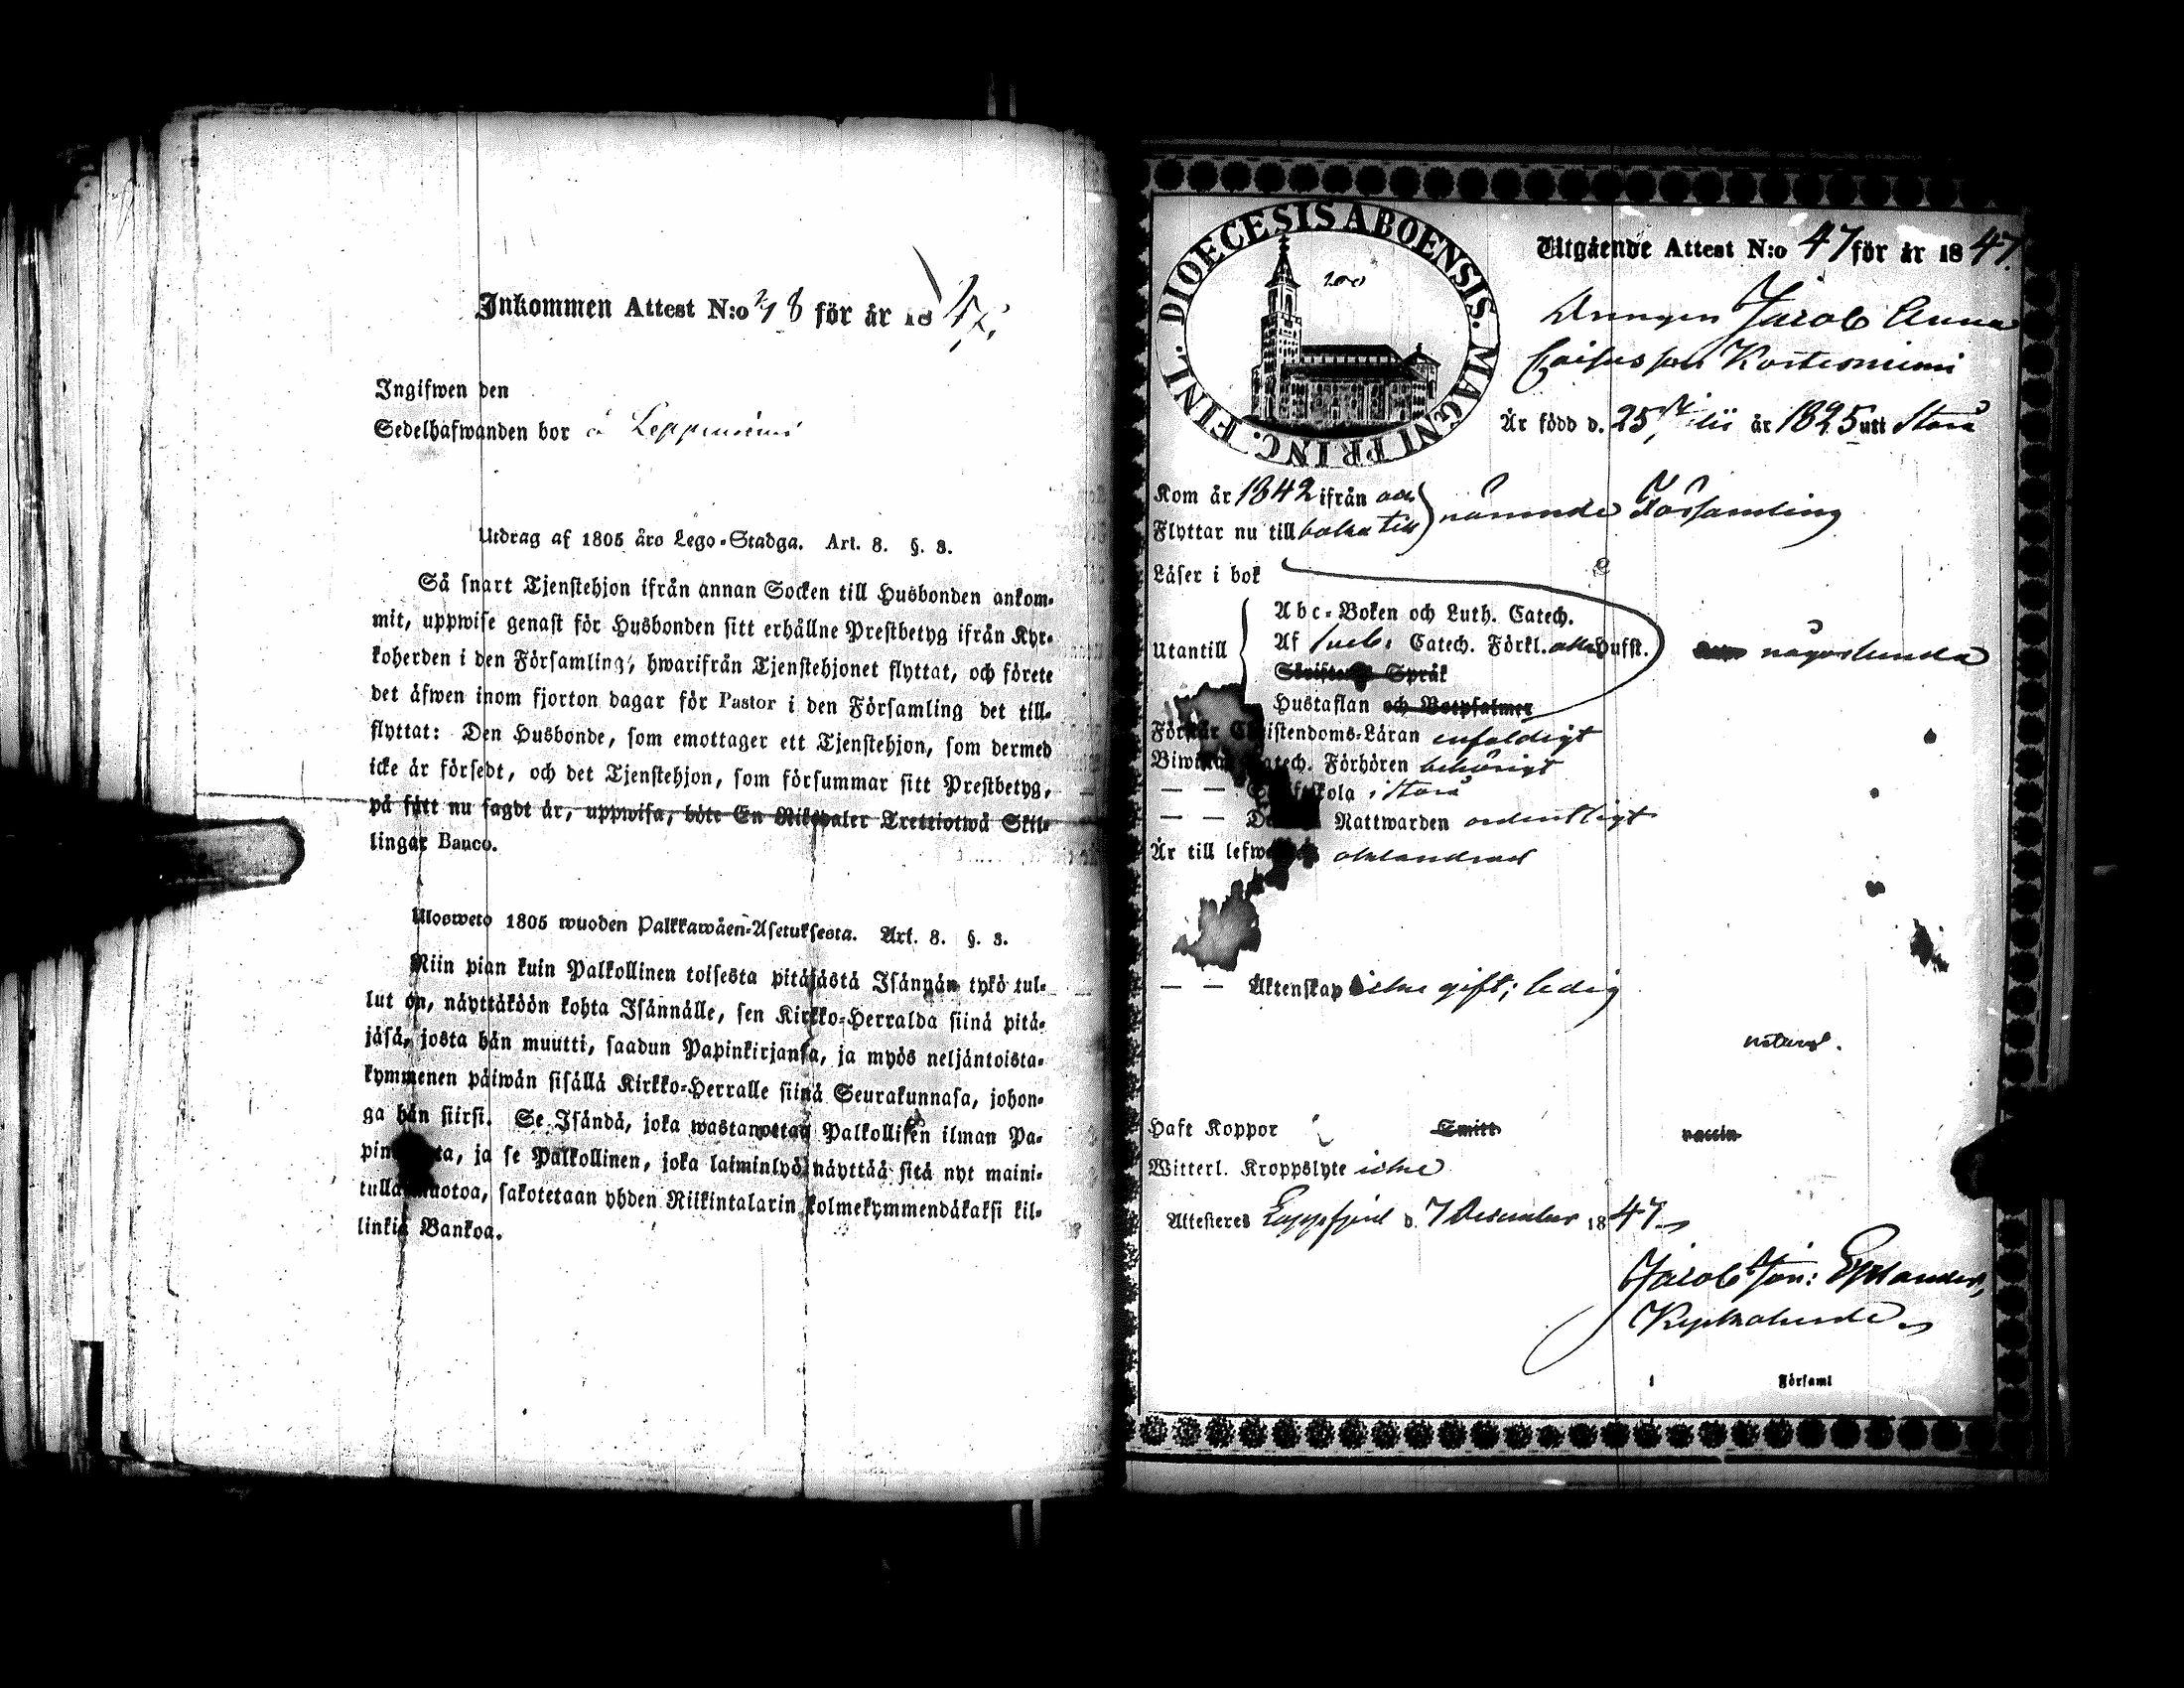 Inkommen Attest N:o 48 för år 1847.
Ingifwen den
Sedelhafwanden bor å Leppeniemi
Utdrag af 1805 års Lego-Stadga. Art. 8. §. 3.
Så snart Tjenstehjon ifrån annan Socken till Husbonden ankom-
mit, uppwise genast för Husbonden sitt erhållne Prestbetyg ifrån Kyr-
koherden i den Församling, hwarifrån Tjenstehjonet flyttat, och förete
det äfwen inom fjorton dagar för Pastor i den Församling det till-
flyttat: Den Husbonde, som emottager ett Tjenstehjon, som dermed
icke är försedt, och det Tjenstehjon, som försummar sitt Prestbetyg,
på sätt nu sagdt är, uppwisa, böte En Riksdaler Trettiotwå Skil-
lingar Banco.
Ulosweto 1805 wuoden Palkkawäen-Asetuksesta. Art. 8. §. 3.
Niin pian kuin Palkollinen toisesta pitäjästä Isännän tykö tul-
lut on, näyttäköön kohta Isännälle, sen Kirkko-Herralda siinä pitä-
jäsä, josta hän muutti, saadun Papinkirjansa, ja myös neljäntoista-
kymmenen päiwän sisällä Kirkko-Herralle siinä Seurakunnasa, johon-
ga hän siirsi. Se Isändä, joka wastanottaa Palkollisen ilman Pa-
pin ta, ja se Palkollinen, joka laiminlyö näyttää sitä nyt maini-
tulla muotoa, sakotetaan yhden Riikintalarin kolmekymmendäkaksi kil-
lingiä Bankoa.
DIOECESIS ABOENSIS. MAGNI PRINC. FINL.
200
Utgående Attest N:o 47 för år 1847.
Drengen Jacob Anna
Caisas son Kortesniemi
Är född d. 25 Julii år 1825 uti Storå
Kom år 1842 ifrån och
Flyttar nu till baka till nämnde Församling
Läser i bok
Abc-Boken och Luth. Catech.
Utantill Af Sveb: Catech. Förkl. alla Hufst. någorlunda
Skriftenes Språk
Hustaflan och Botpsalmer
Förstår Christendoms-Läran enfaldigt
Biwistat Catech. Förhören behörigt
— — Skriftskola i Storå
— — Nattwarden ordentligt
Är till lefwernet oklandrad
— — Äktenskap icke gift; ledig
naturl.
Haft Koppor Smitt vaccin
Witterl. Kroppslyte icke
Attesteres Lappfjerd d. 7 December 1847
Jacob Jon: Estlander,
Kyrkoherde
i Församl